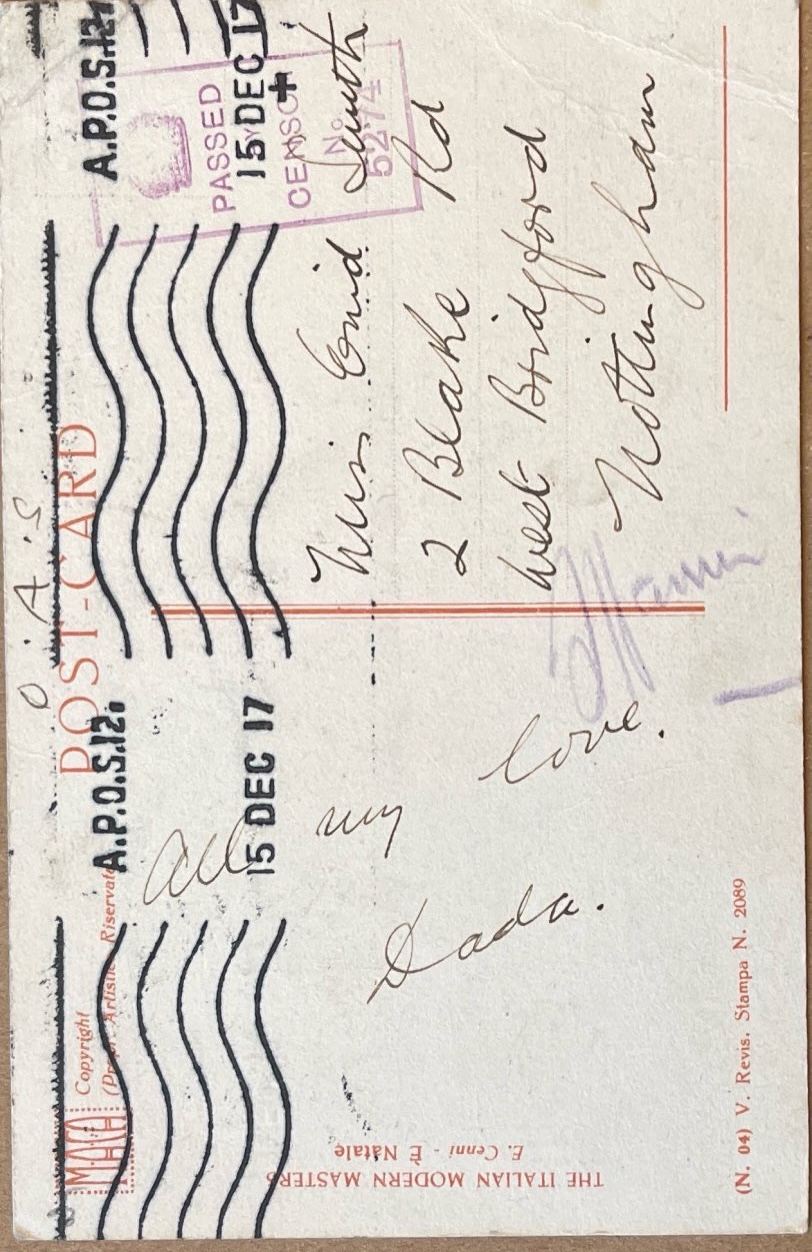 O A S
POST-CARD
MACA
Copyright
(Propr. Artistic Riservata
A.P.O.S.12.
15 DEC 17
A.P.O.S.12.
15 DEC 17
PASSED
BY
CENSOR
No.
5274
All my love.
Dada.
Miss Enid Smith
2 Blake Rd
West Bridgford
Nottingham
THE ITALIAN MODERN MASTERS
E. Cenni - È Natale
(N. 04) V. Revis. Stampa N. 2089